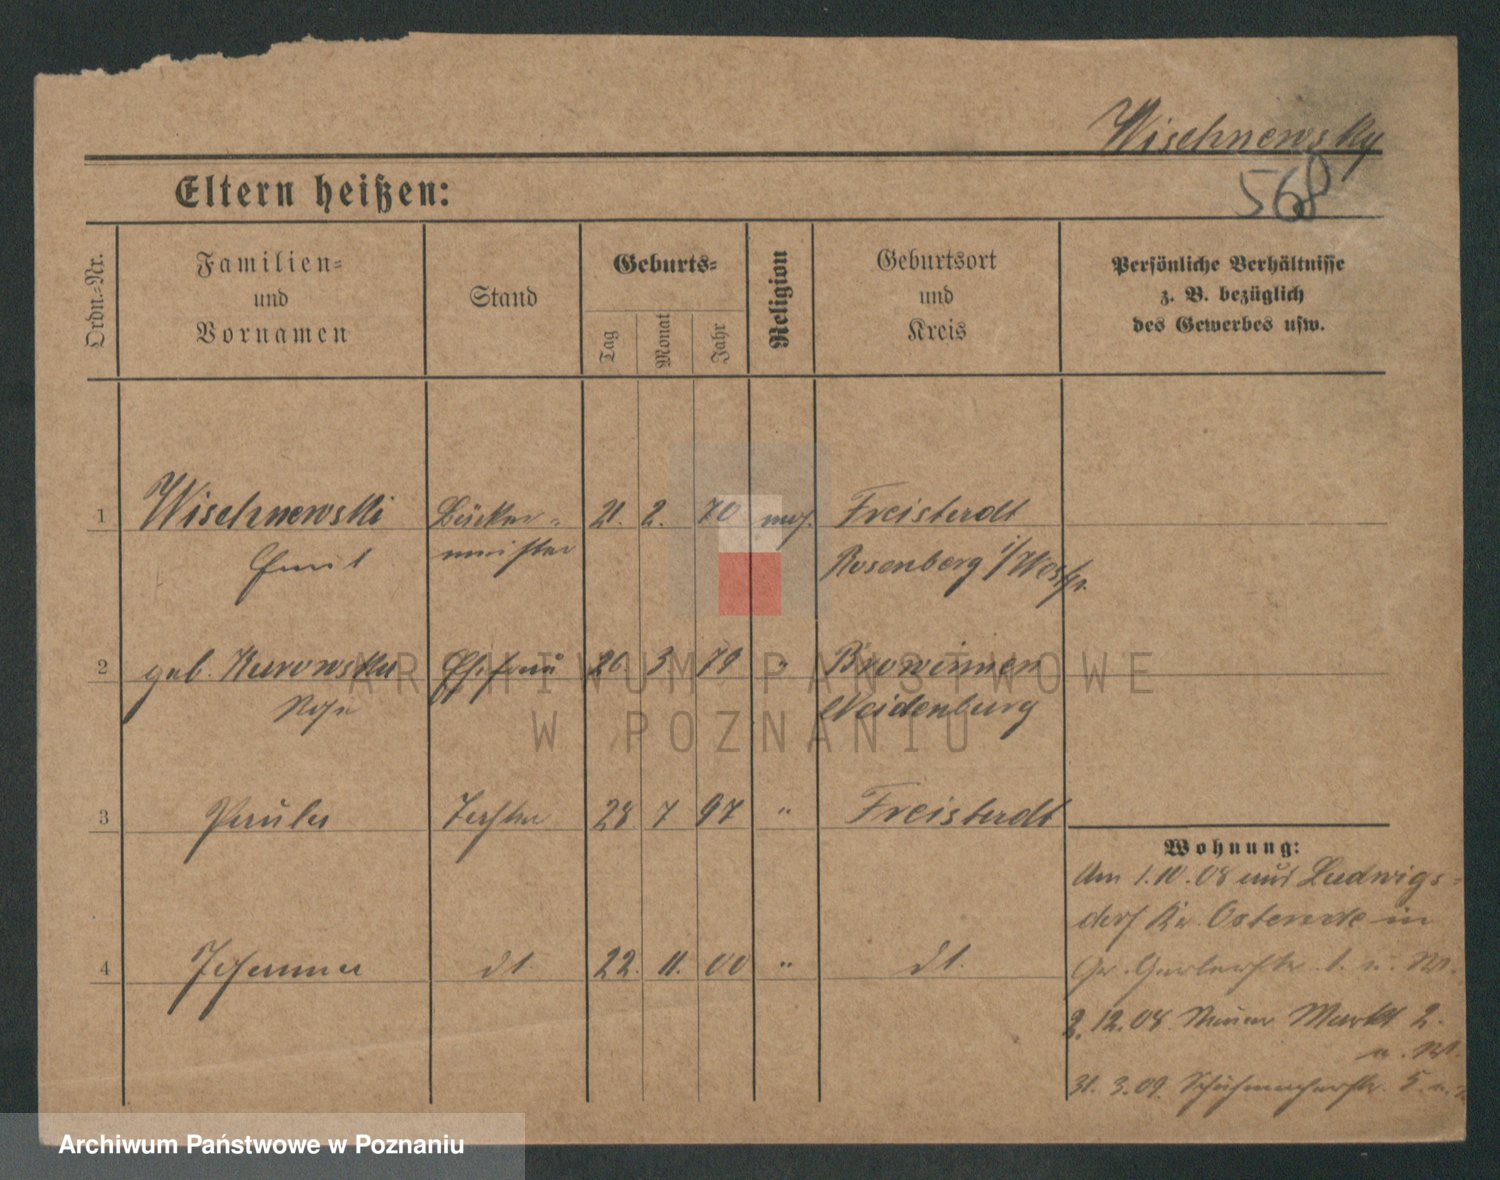 Wischnewsky
568
Eltern heißen:
Ordn.=Nr.
Familien=
und
Vornamen
Stand
Geburts=
Tag
Monat
Jahr
Religion
Geburtsort
und
Kreis
Persönliche Verhältnisse
z. B. bezüglich
des Gewerbes usw.
1 Wischnewski Bäcker= 21. 2. 70 Freistadt
Emil meister Rosenberg i/Westpr.
2 geb. Kurowska Ehefrau 26 3 79 " Browienen
Rosa Neidenburg
3 Paula Tochter 28 7 97 " Freistadt
4 Johanna dt 22. 11. 00 " dt.
Wohnung:
Am 1.10.08 aus Ludwigs=
dorf Kr. Osterode in
Gr. Gerberstr. 1. u. W.
2.12.08 Neuer Markt 2.
u. W.
31. 3.09. Schuhmacherstr. 5
ARCHIWUM PAŃSTWOWE
W POZNANIU
Archiwum Państwowe w Poznaniu